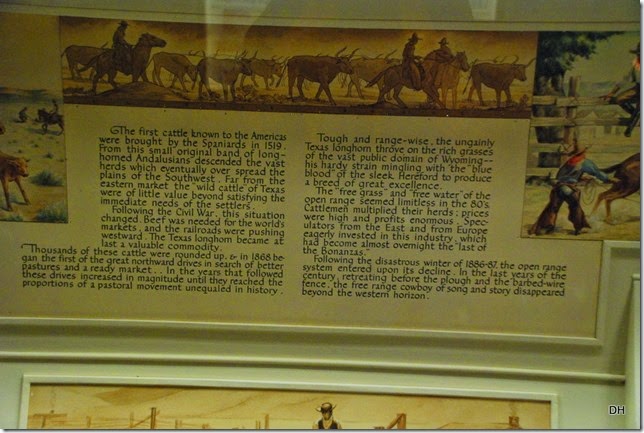 The first cattle known to the Americas
were brought by the Spaniards in 1519.
From this small original band of long-
horned Andalusians descended the vast
herds which eventually over spread the
plains of the Southwest. Far from the
eastern market the wild cattle of Texas
were of little value beyond satisfying the
immediate needs of the settlers.
Following the Civil War, this situation
changed. Beef was needed for the world's
markets, and the railroads were pushing
westward. The Texas longhorn became at
last a valuable commodity.
Thousands of these cattle were rounded up, & in 1868 be-
gan the first of the great northward drives in search of better
pastures and a ready market.. In the years that followed
these drives increased in magnitude until they reached the
proportions of a pastoral movement unequaled in history.
Tough and range-wise, the ungainly
Texas longhorn throve on the rich grasses
of the vast public domain of Wyoming--
his hardy strain mingling with the blue
blood of the sleek Hereford to produce
a breed of great excellence.
The "free grass" and "free water" of the
open range seemed limitless in the 80's.
Cattlemen multiplied their herds; prices
were high and profits enormous. Spec-
ulators from the East and from Europe
eagerly invested in this industry, which
had become almost overnight the "last of
the Bonanzas."
Following the disastrous winter of 1886-87, the open range
system entered upon its decline. In the last years of the
century, retreating before the plough and the barbed-wire
fence, the free range cowboy of song and story disappeared
beyond the western horizon.
DH